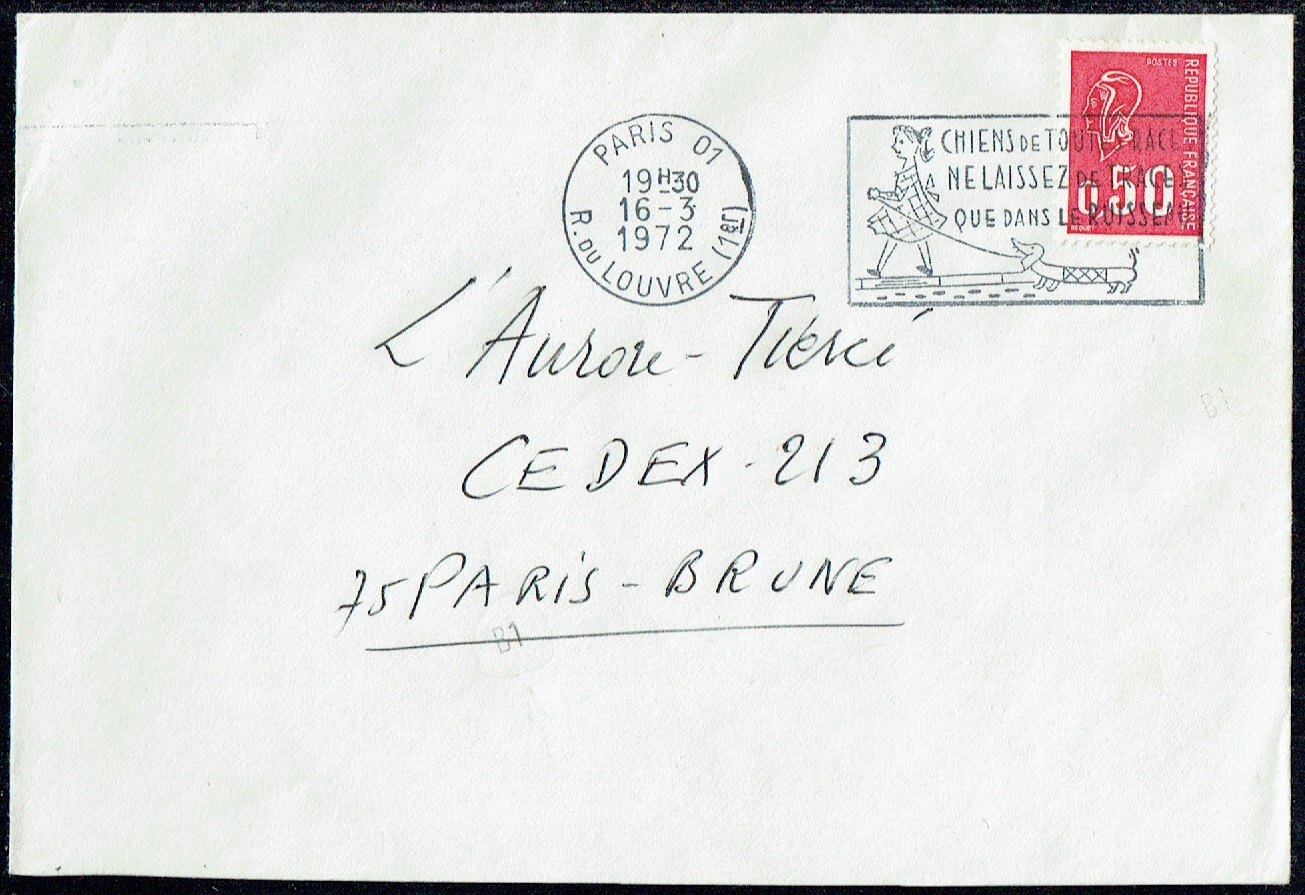 PARIS 01
19H30
16-3
1972
R. DU LOUVRE (1er)
CHIENS DE TOUTE RACE
NE LAISSEZ DE TRACE
QUE DANS LE RUISSEAU
POSTES
REPUBLIQUE FRANÇAISE
0.50
BEQUET
L'Aurore-Tiercé
CEDEX-213
75 PARIS-BRUNE
B1
B1